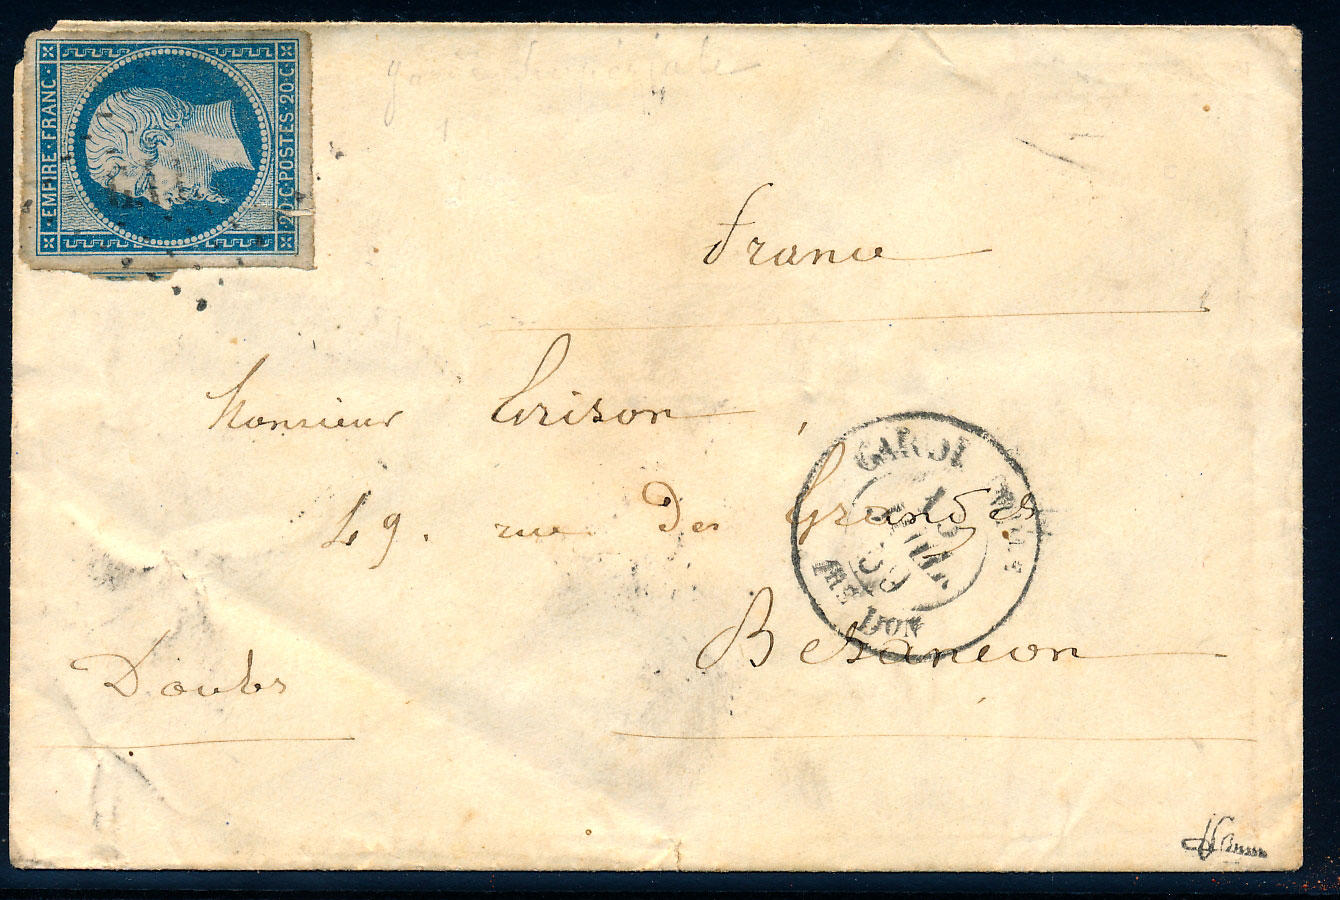 EMPIRE · FRANC ·
20 C · POSTES · 20 C ·
garde Impériale
France
Monsieur Grison
49. rue des Grandes
Besancon
Doubs
GARDE IMPLE
13
JUIL
59
1RE DON